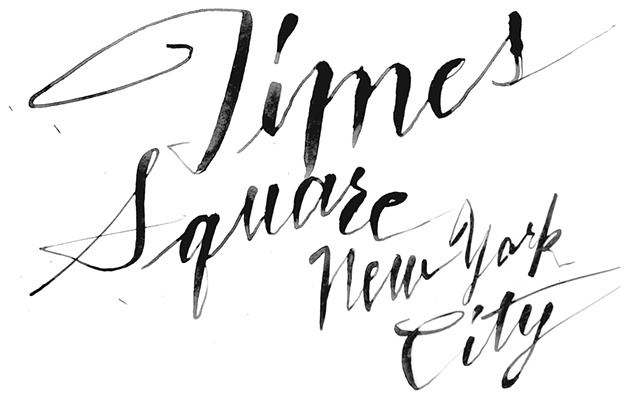 Times
Square
New York
City